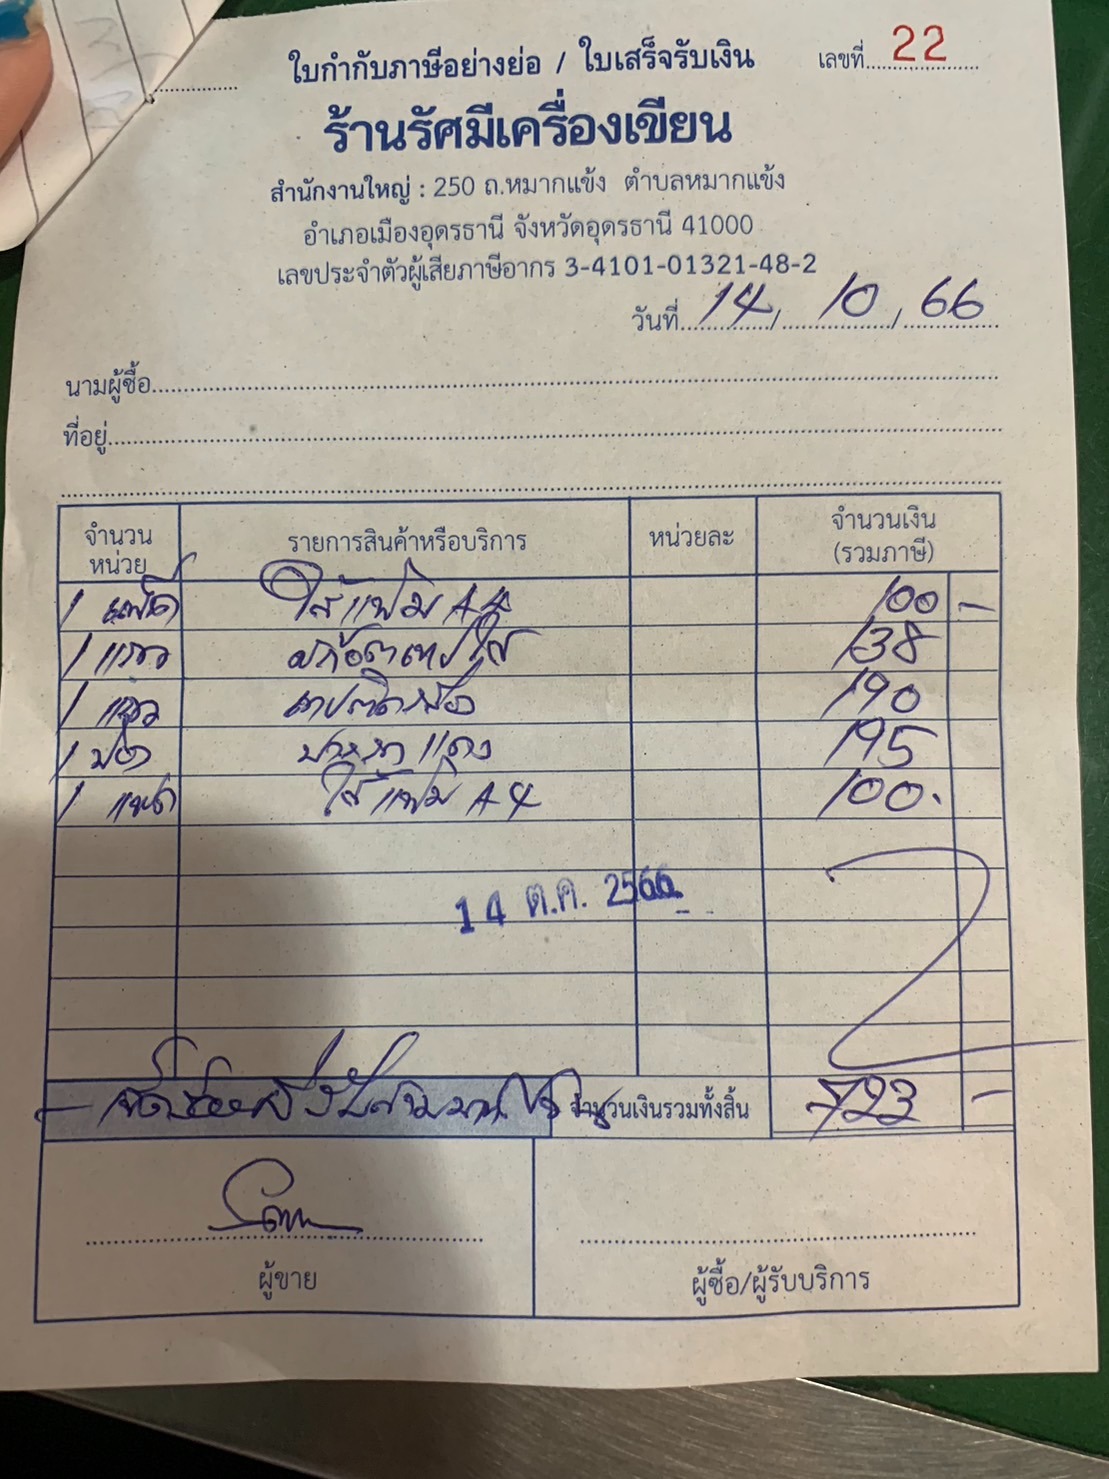 ใบกำกับภาษีอย่างย่อ / ใบเสร็จรับเงิน เลขที่ 22
ร้านรัศมีเครื่องเขียน
สำนักงานใหญ่ : 250 ถ.หมากแข้ง ตำบลหมากแข้ง
อำเภอเมืองอุดรธานี จังหวัดอุดรธานี 41000
เลขประจำตัวผู้เสียภาษีอากร 3-4101-01321-48-2
วันที่ 14 / 10 / 66
นามผู้ซื้อ
ที่อยู่
จำนวนหน่วย รายการสินค้าหรือบริการ หน่วยละ จำนวนเงิน (รวมภาษี)
1 แพ็ค ไส้แฟ้ม A4 100 -
1 แถว 138
1 190
1 195
1 ไส้แฟ้ม A4 100.
14 ต.ค. 2566
จำนวนเงินรวมทั้งสิ้น 723 -
ผู้ขาย ผู้ซื้อ/ผู้รับบริการ